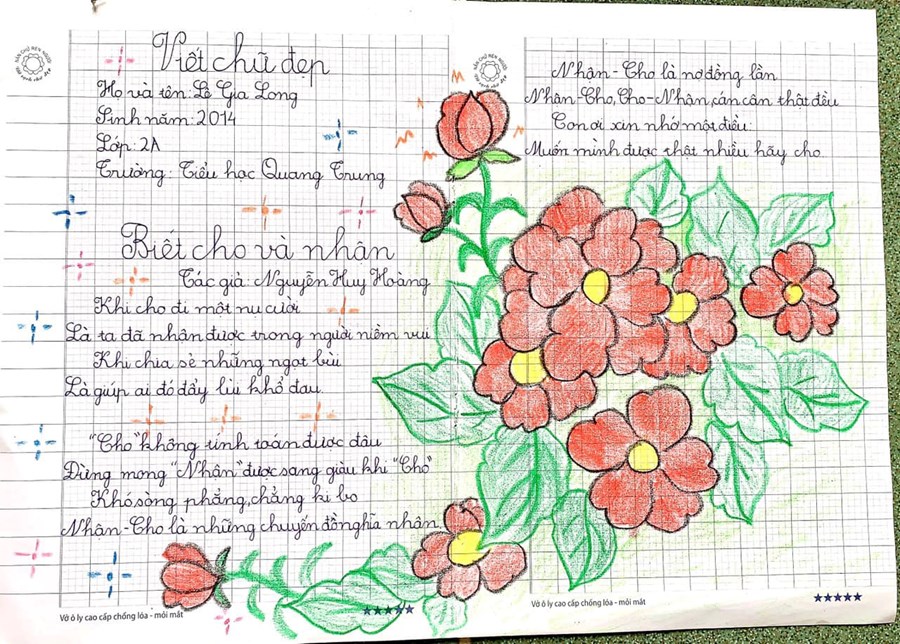 Viết chữ đẹp
Họ và tên: Lê Gia Long
Sinh năm: 2014
Lớp: 2A
Trường: Tiểu học Quang Trung
Biết cho và nhận
Tác giả: Nguyễn Huy Hoàng
Khi cho đi một nụ cười
Là ta đã nhận được trong người niềm vui
Khi chia sẻ những ngọt bùi
Là giúp ai đó đẩy lùi khổ đau
"Cho" không tính toán được đâu
Đừng mong "Nhận" được sang giàu khi "Cho"
Khó sòng phẳng, chẳng ki bo
Nhận-Cho là những chuyến đò nghĩa nhân
Vở ô ly cao cấp chống lóa - mỏi mắt
Nhận-Cho là nợ đồng lần
Nhận-Cho, Cho-Nhận, cán cân thật đều
Con ơi xin nhớ một điều:
Muốn mình được thật nhiều hãy cho
Vở ô ly cao cấp chống lóa - mỏi mắt